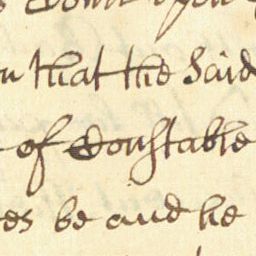 n that the said
of Constable
es be and he